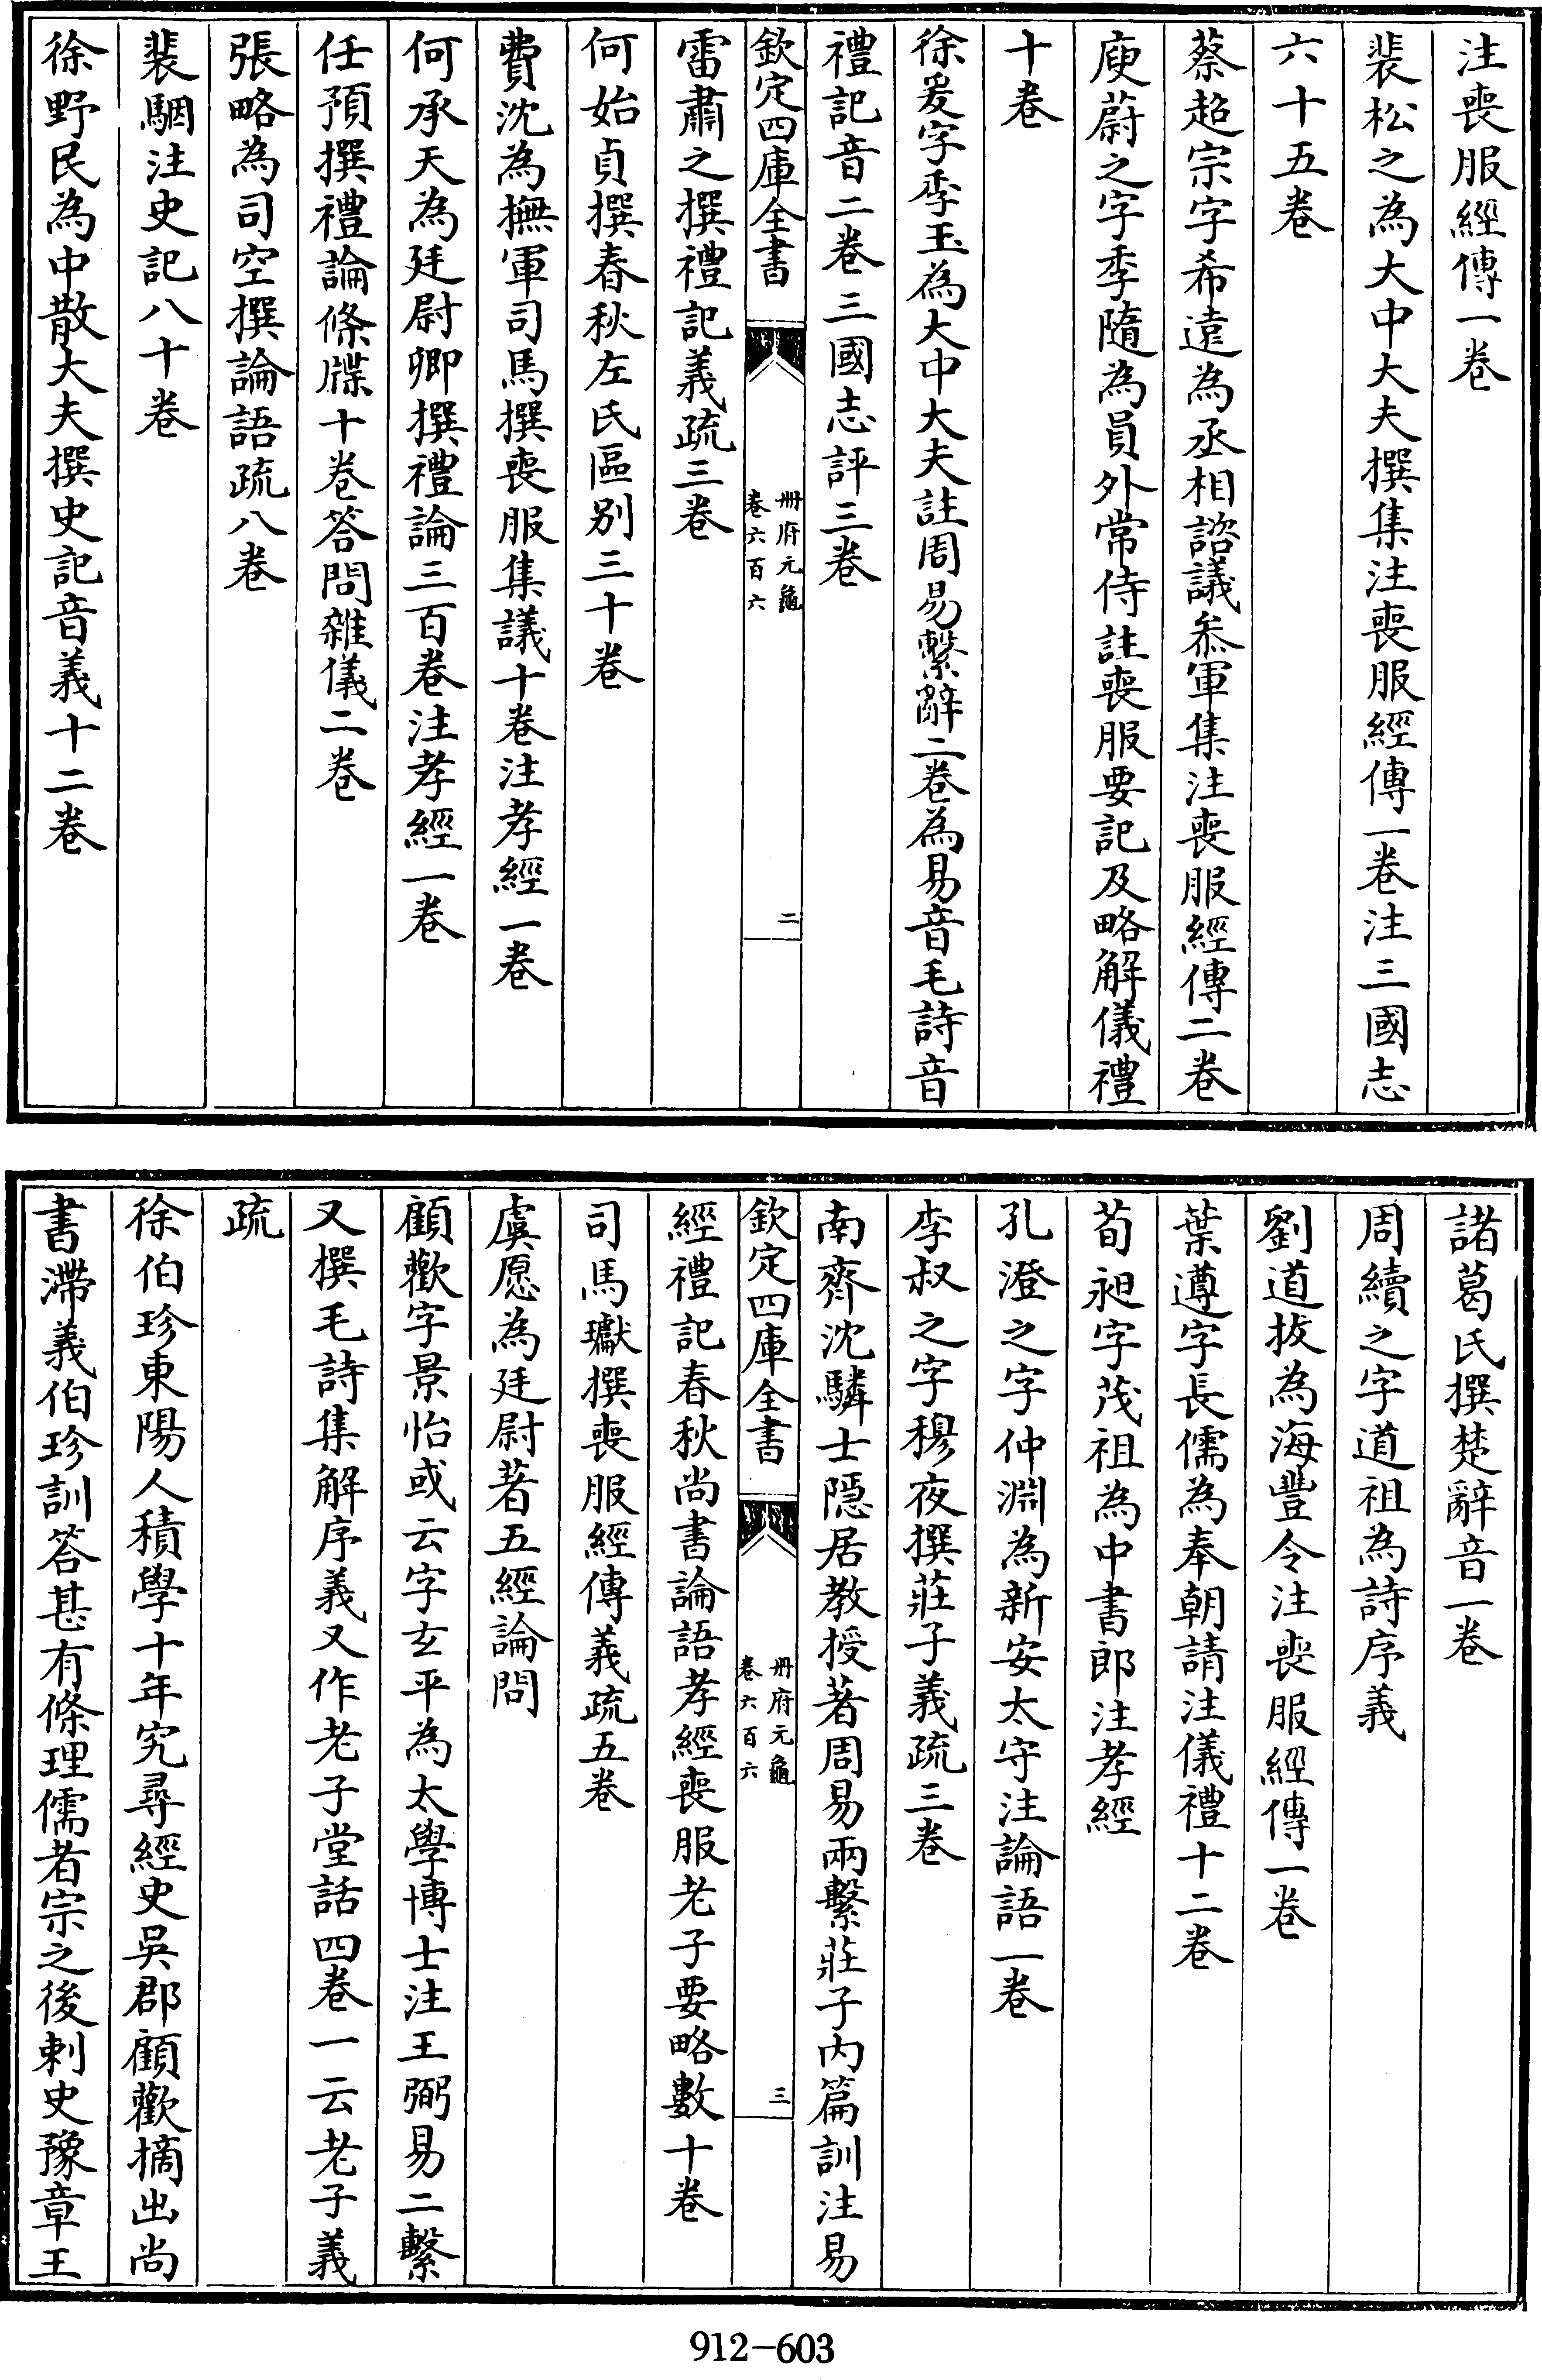 注喪服經傳一卷
裴松之為大中大夫撰集注喪服經傳一卷注三國志
六十五卷
蔡超宗字希遠為丞相諮議叅軍集注喪服經傳二卷
庾蔚之字季隨為員外常侍註喪服要記及略解儀禮
十卷
徐爰字季玉為大中大夫註周易繫辭二卷為易音毛詩音
禮記音二卷三國志評三卷
欽定四庫全書
冊府元龜
卷六百六
二
雷肅之撰禮記義疏三卷
何始貞撰春秋左氏區别三十卷
費沈為撫軍司馬撰喪服集議十卷注孝經一卷
何承天為廷尉卿撰禮論三百卷注孝經一卷
任預撰禮論條牒十卷答問雜儀二卷
張略為司空撰論語疏八卷
裴駰注史記八十卷
徐野民為中散大夫撰史記音義十二卷
諸葛氏撰楚辭音一卷
周續之字道祖為詩序義
劉道拔為海豐令注喪服經傳一卷
葉遵字長儒為奉朝請注儀禮十二卷
荀昶字茂祖為中書郎注孝經
孔澄之字仲淵為新安太守注論語一卷
李叔之字穆夜撰莊子義疏三卷
南齊沈驎士隱居教授著周易兩繫莊子内篇訓注易
欽定四庫全書
冊府元龜
卷六百六
三
經禮記春秋尚書論語孝經喪服老子要略數十卷
司馬瓛撰喪服經傳義疏五卷
虞愿為廷尉著五經論問
顧歡字景怡或云字玄平為太學博士注王弼易二繫
又撰毛詩集解序義又作老子堂話四卷一云老子義
疏
徐伯珍東陽人積學十年究尋經史吳郡顧歡摘出尚
書滯義伯珍訓答甚有條理儒者宗之後刺史豫章王
912-603